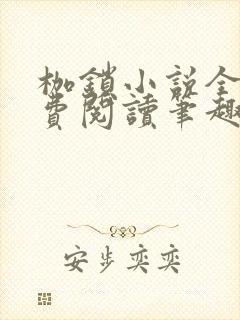 枷鎖小说全
費閱讀筆趣
安步奕奕